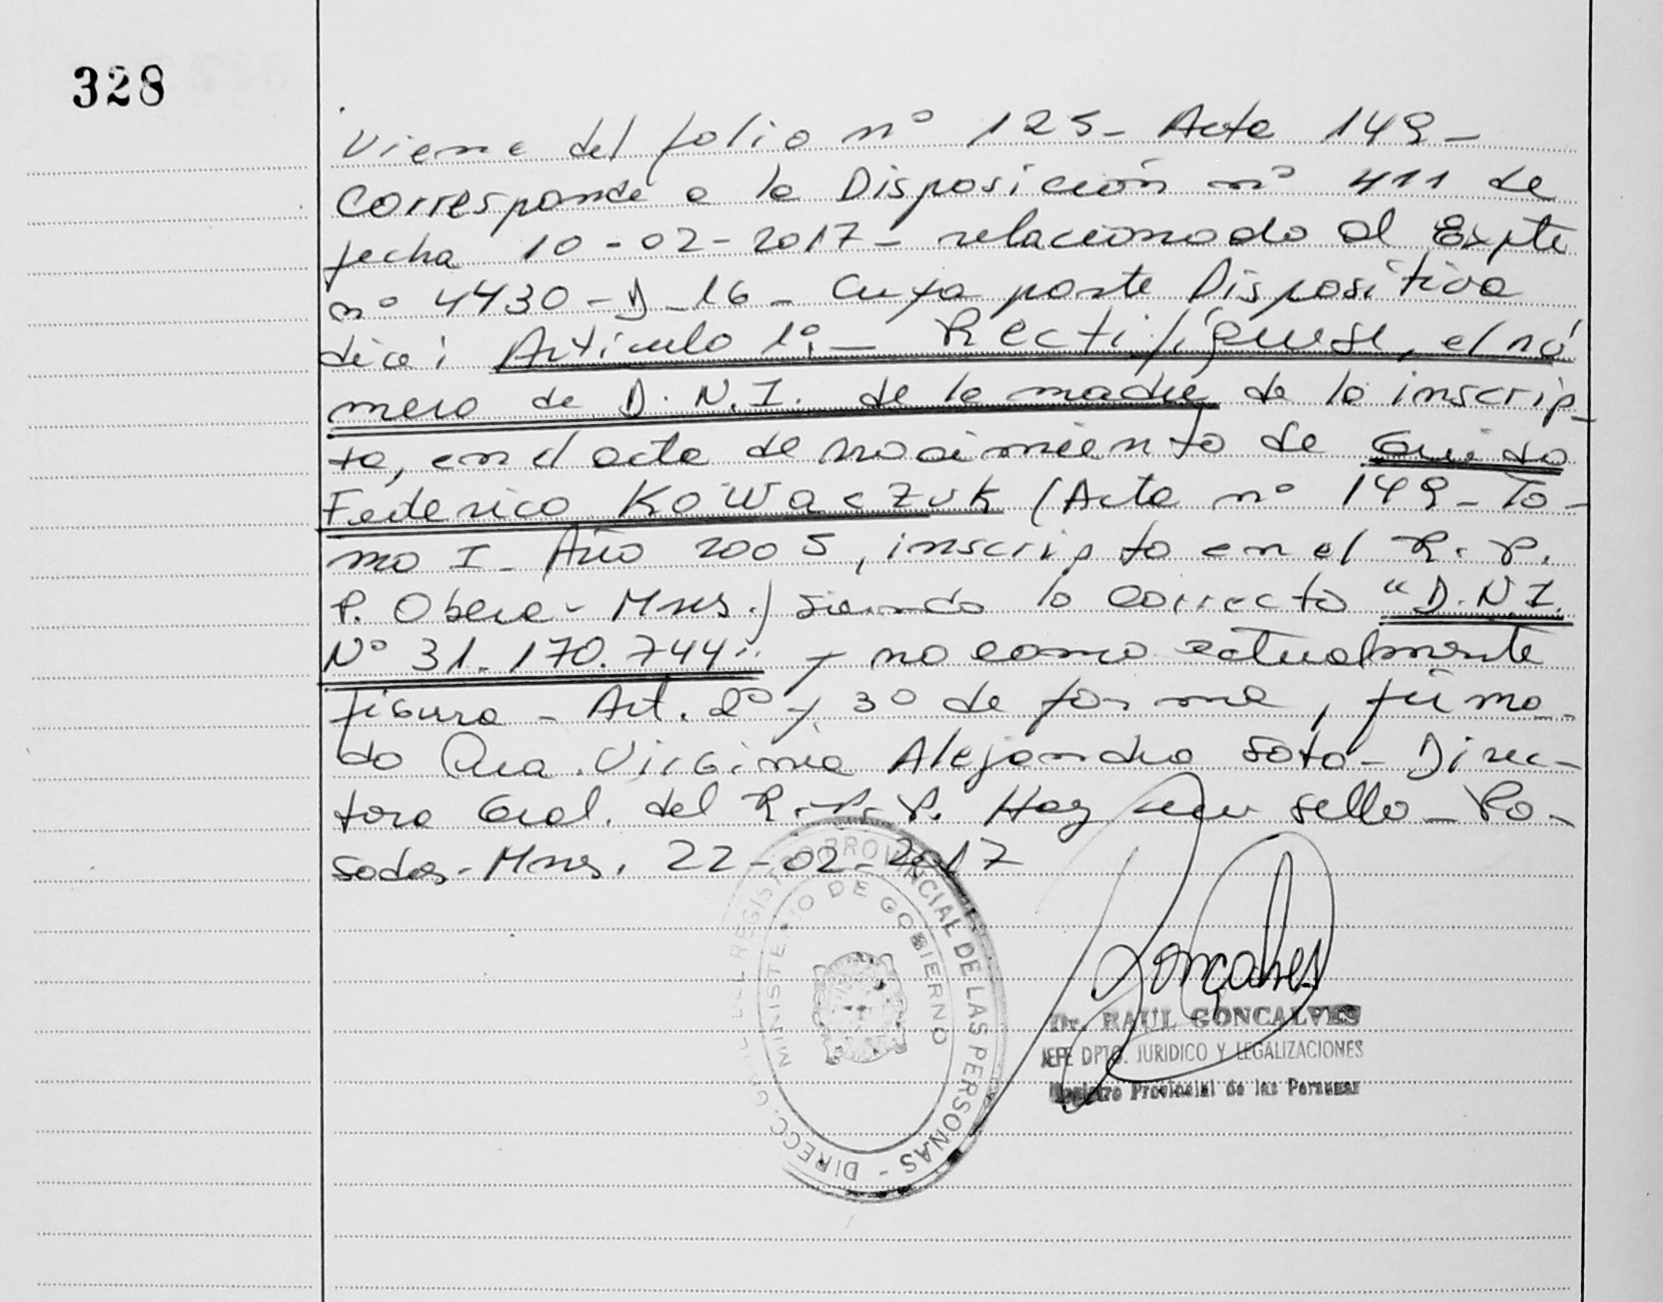 328
Viene del folio nº 125- Acta 149-
Corresponde a la Disposición nº 411 de
fecha 10-02-2017- relacionado al Expte
nº 4430-D-16- Cuya parte Dispositiva
dice: Artículo 1º:- Rectifíquese, el nú
mero de D.N.I. de la madre de la inscrip-
ta, en el acta de nacimiento de Guido
Federico Kowaczuk (Acta nº 149-To-
mo I- Año 2005, inscripto en el R.P.
P. Obera- Mnes.) siendo lo correcto "D.N.I.
Nº 31.170.744" y no como actualmente
figura- Art. 2º y 3º de forma, firma-
do Virginia Alejandra Soto- Direc-
tora Gral. del R.P.P. Hay un sello- Po-
sadas- Mnes. 22-02-2017
DIRECC. GRAL. DEL REGISTRO PROVINCIAL DE LAS PERSONAS -
MINISTERIO DE GOBIERNO
Gonçalves
Dr. RAUL GONCALVES
JEFE DPTO. JURIDICO Y LEGALIZACIONES
Registro Provincial de las Personas